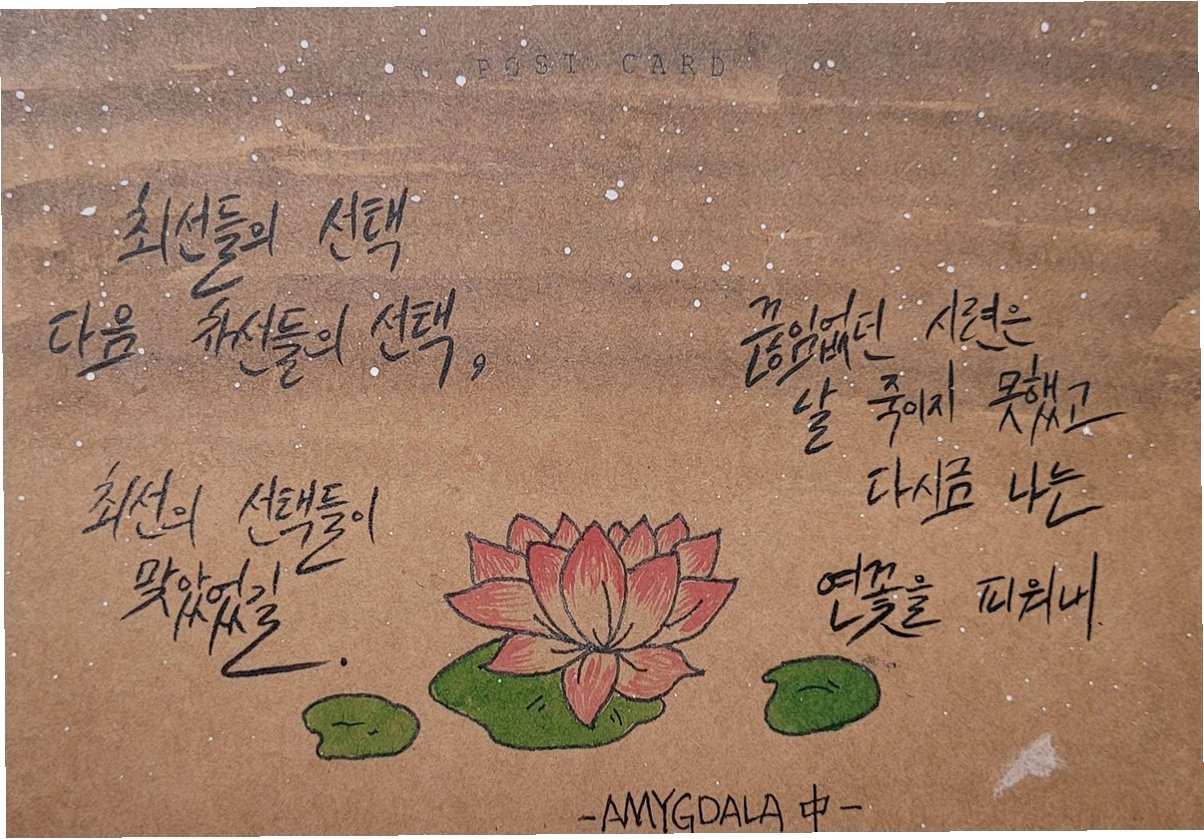 POST CARD
최선들의 선택
다음 차선들의 선택,
최선의 선택들이
맞았었길.
끊임없던 시련은
날 죽이지 못했고
다시금 나는
연꽃을 피워내
-AMYGDALA 中-